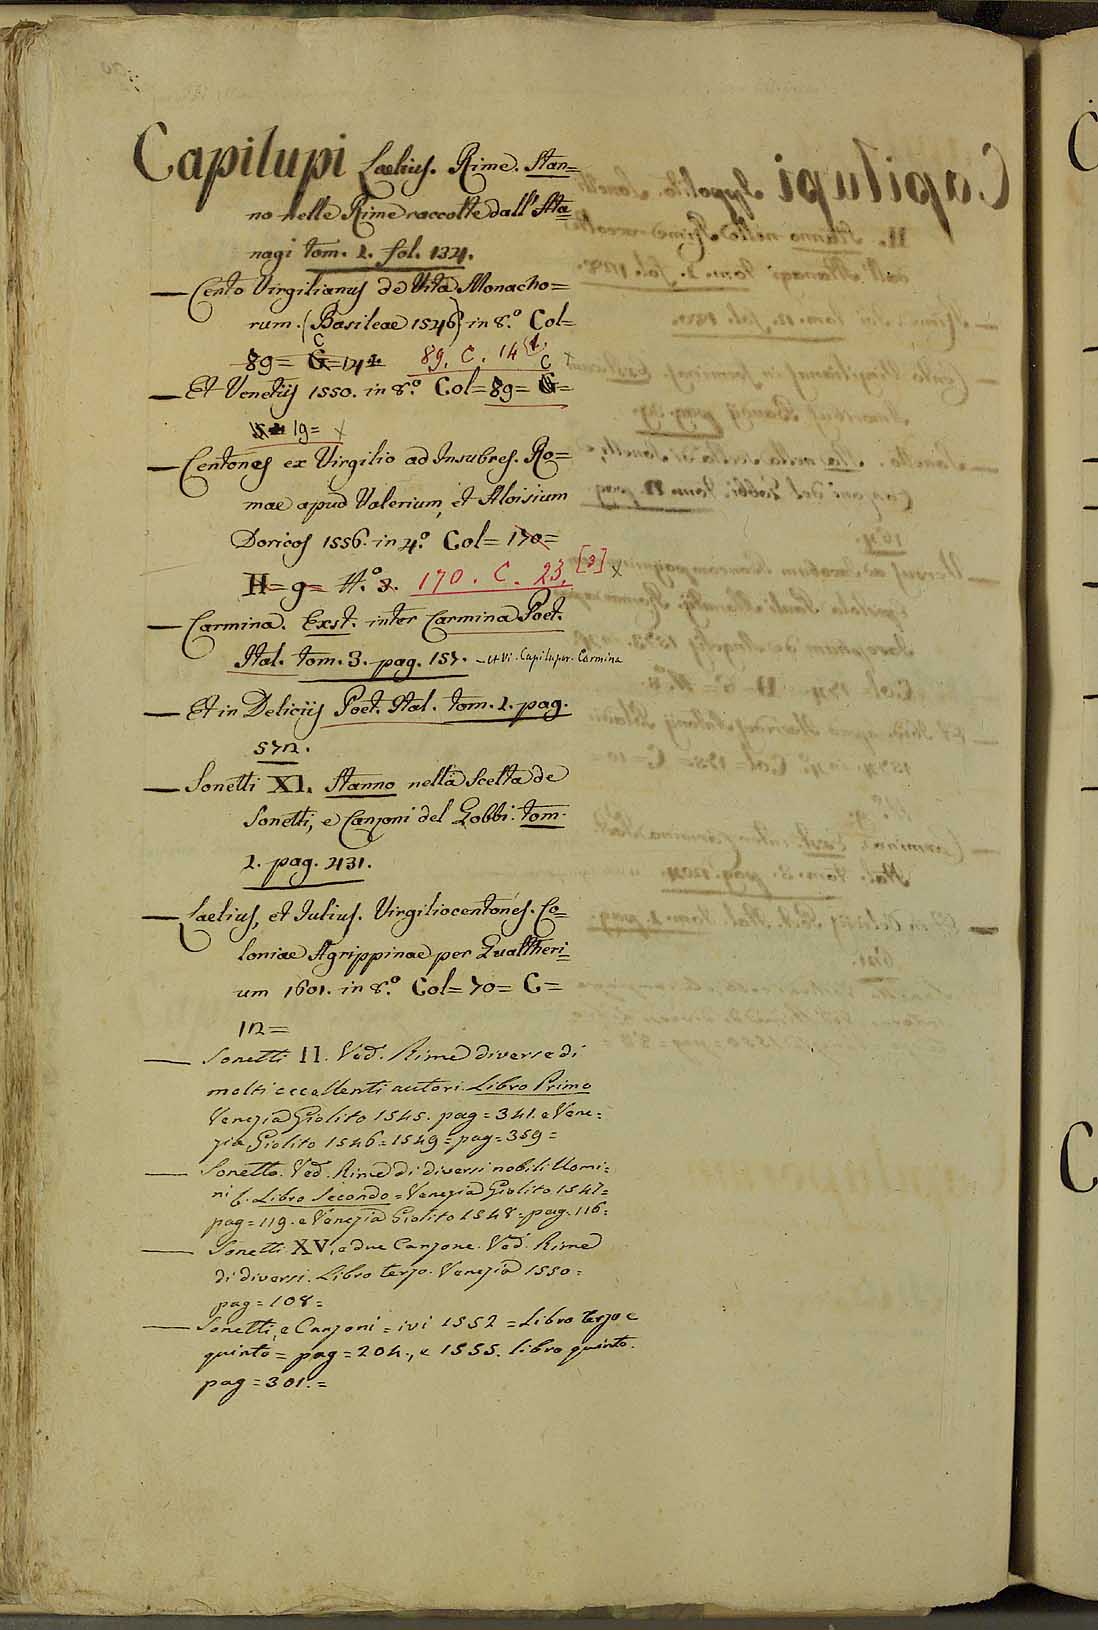 Capilupi Laelius. Rime. Stan=
no nelle Rime raccolte dall' Ata=
nagi tom. 1. fol. 134.
— Cento Virgilianus de Vita Monacho=
rum. (Basileae 1546) in 8.° Col=
C
89= 141 89. C. 14
— Et Venetiis 1550. in 8.° Col= 89= C
19= x
— Centones ex Virgilio ad Insubres. Ro=
mae apud Valerium, et Aloisium
Doricos 1556. in 4.° Col= 170=
H= 9= N.° 3. 170. C. 23. [3] x
— Carmina. Exst. inter Carmina Poet.
Ital. tom. 3. pag. 157. - et Vi. Capilupor. Carmina
— Et in Deliciis Poet. Ital. tom. 1. pag.
572.
— Sonetti XI. Stanno nella Scelta de
Sonetti, e Canzoni del Gobbi. tom.
1. pag. 431.
— Laelius, et Iulius. Virgiliocentones. Co=
loniae Agrippinae per Gualtheri=
um 1601. in 8.° Col= 70= C=
12=
— Sonetti II. Ved. Rime diverse di
molti eccellenti autori. Libro Primo
Venezia Giolito 1545. pag= 341. e Vene=
zia Giolito 1546= 1549= pag= 359=
— Sonetto. Ved. Rime di diversi nobili Uomi=
ni &. Libro Secondo= Venezia Giolito 1547=
pag= 119. e Venezia Giolito 1548= pag. 116=
— Sonetti XV, e due Canzone. Ved. Rime
di diversi. Libro terzo. Venezia 1550=
pag= 108=
— Sonetti, e Canzoni= ivi 1552= Libro terzo e
quinto= pag= 204., e 1555. libro quinto.
pag= 301.=